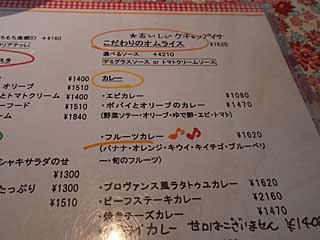 もちもち食感!!) +¥160
★おいしいケチャップライス
こだわりのオムライス ¥1620
選べるソース +¥210
デミグラスソース or トマトクリームソース
スタ
カレー
¥1400
・エビカレー ¥1080
オリーブ ¥1510
・ポパイとオリーブのカレー ¥1470
トクリーム ¥1400
(野菜ソテー・オリーブ・ゆで卵・エビ・トマト)
ーフード ¥1510
ーム ¥1840
・フルーツカレー ¥1620
(バナナ・オレンジ・キウイ・キイチゴ・ブルーベリー
・旬のフルーツ)
シャキサラダのせ
¥1300
・プロヴァンス風ラタトゥユカレー ¥1620
たっぷり ¥1300
・ビーフステーキカレー ¥2160
¥1510
・焼きチーズカレー ¥1470
カレー 甘口はございません ¥140